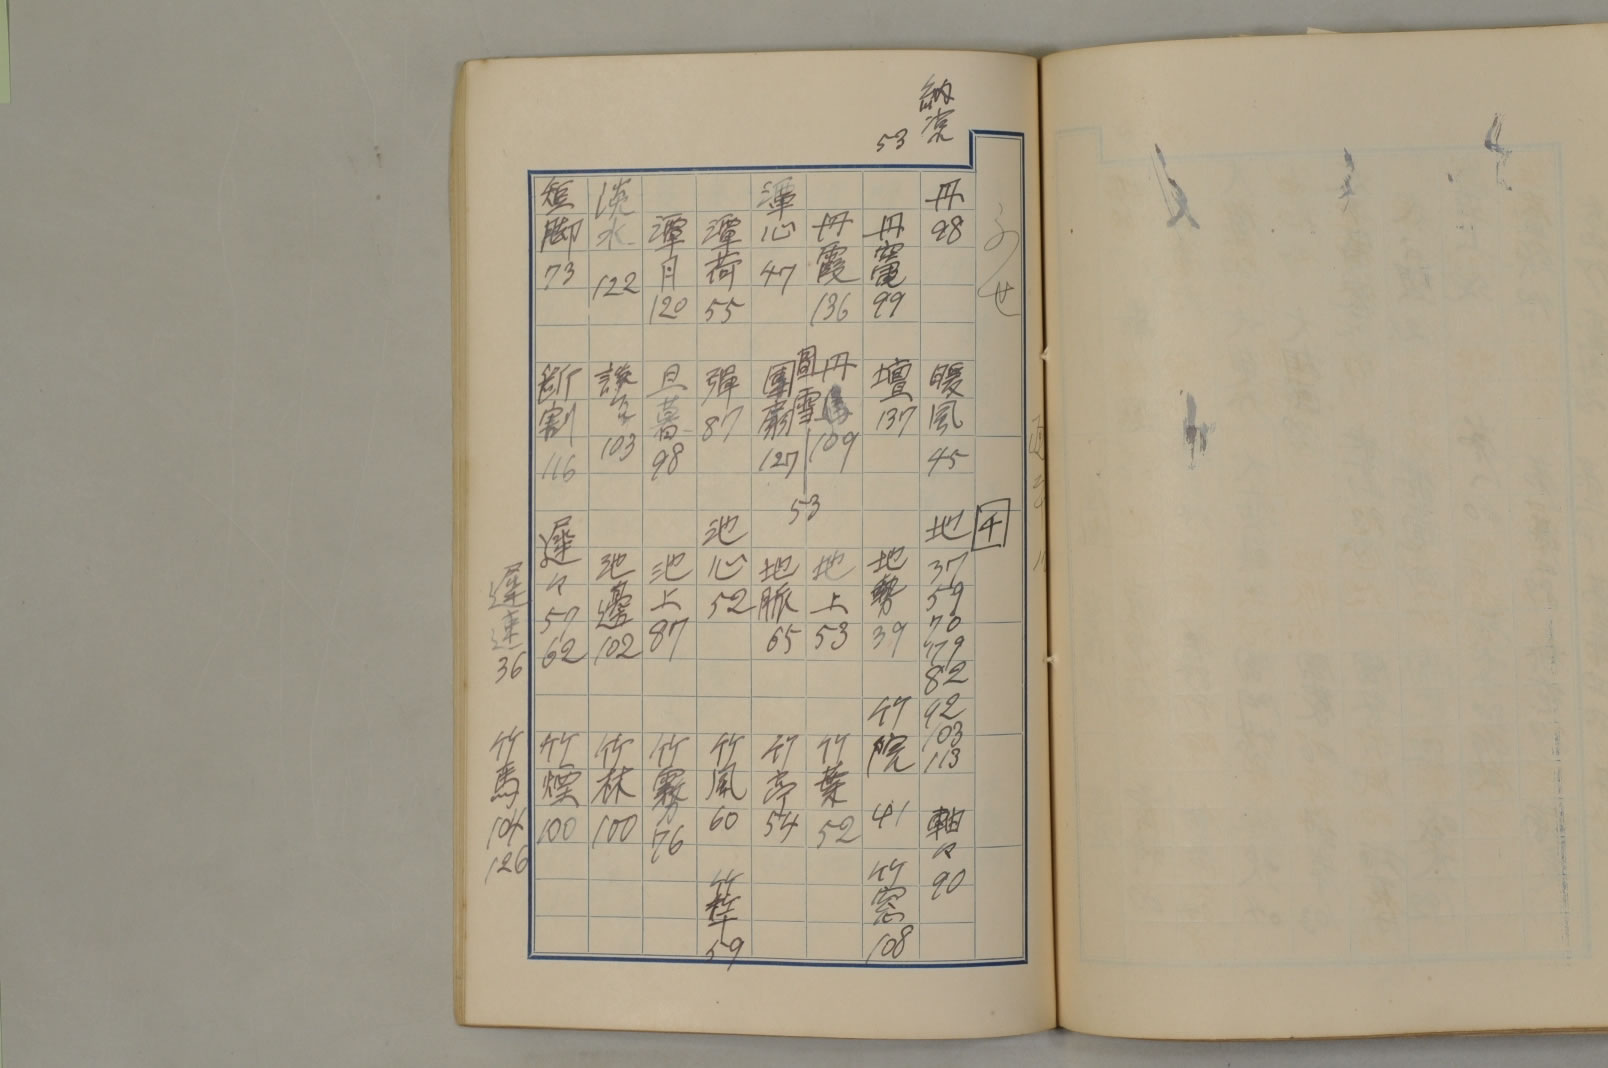 納涼 53
丹 98
暖風 45
チ
地 37 59 70 79 82 92 103 113
軸々 90
丹竈 99
壇 137
地勢 39
竹院 41
竹窓 108
丹霞 136
丹 109
地上 53
竹葉 52
圓雪 53
潭心 47
團扇 127
地脈 65
竹亭 54
潭荷 55
彈 87
池心 52
竹風 60
59
潭月 120
旦暮 98
池上 87
竹霧 76
淡水 122
談玄 103
池邊 102
竹林 100
短脚 73
断割 116
遲々 57 62
竹煙 100
遲速 36
竹馬 104 126